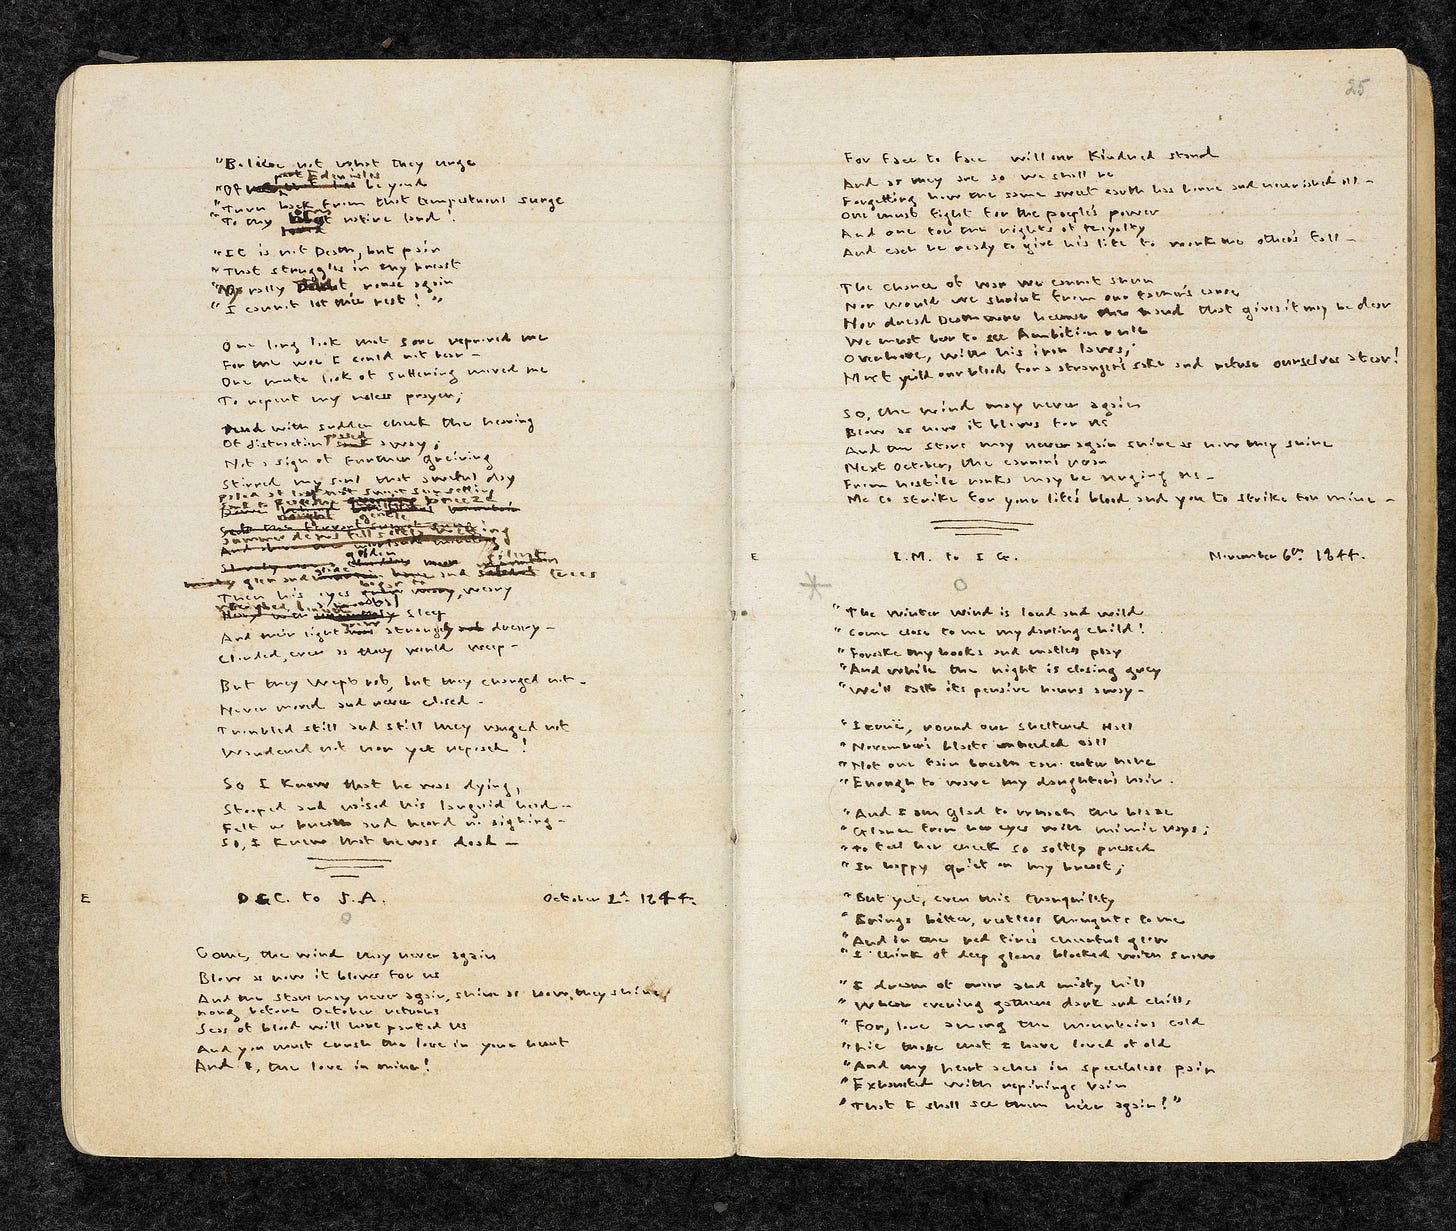 "Believe not what they urge
"Of past Eden isles beyond
"Turn back from that tempestuous surge
"To thy native land!
"It is not Death, but pain
"That struggles in my breast
"Nay rally rouse again
"I cannot let thee rest!"
One long look that sore reproved me
For the woe I could not bear –
One mute look of suffering moved me
To repent my useless prayer;
And with sudden check the heaving
Of distraction passed away;
Not a sign of further greiving
Stirred my soul that awful day
Paled at last the sweet sun setting
Sunk to peace the breeze
Summer dews fell softly wetting
glen and and silent trees
Then his eyes began to weary
Weighed beneath a mortal sleep
And their light grew strangely dreary –
Clouded, even as they would weep –
But they wept not, but they changed not –
Never moved and never closed –
Troubled still and still they ranged not
Wandered not nor yet reposed!
So I knew that he was dying,
Stooped and raised his languid head –
Felt no breath and heard no sighing –
So, I knew that he was dead –
E
D.G.C. to J.A.
October 2d 1844.
Come, the wind may never again
Blow as now it blows for us
And the stars may never again, shine as now they shine,
Long before October returns
Seas of blood will have parted us
And you must crush the love in your heart
And I, the love in mine!
25
For face to face will our Kindred stand
And as they are so we shall be
Forgetting how the same sweet earth has borne and nourished all –
One must fight for the people's power
And one for the rights of Royalty
And each be ready to give his life to work the other's fall –
The chance of war we cannot shun
Nor would we shrink from our father's cause
Nor dread Death more because the hand that gives it may be dear
We must bear to see Ambition rule
Over love, with his iron laws;
Must yield our blood for a stranger's sake and refuse ourselves a tear!
So, the wind may never again
Blow as now it blows for us
And the stars may never again shine as now they shine
Next October, the cannon's roar
From hostile ranks may be urging us –
Me to strike for your life's blood and you to strike for mine –
E
November 6th 1844.
"The winter wind is loud and wild
"Come close to me my darling child!
"Forsake thy books and mateless play
"And while the night is closing grey
"We'll talk its pensive hours away –
"Iernë, round our sheltered Hall
"November's blasts unheeded call
"Not one fain breath can enter here
"Enough to wave my daughter's hair.
"And I am glad to watch the blaze
"Glance from her eyes with mimic rays;
"To feel her cheek so softly pressed
"In happy quiet on my breast;
"But yet, even this tranquility
"Brings bitter, restless thoughts to me
"And in the red fire's cheerful glow
"I think of deep glens blocked with snow
"I dream of moor and misty hill
"Where evening gathers dark and chill,
"For, lone among the mountains cold
"Lie those that I have loved of old
"And my heart aches in speechless pain
"Exhausted with repinings vain
"That I shall see them ne'er again!"